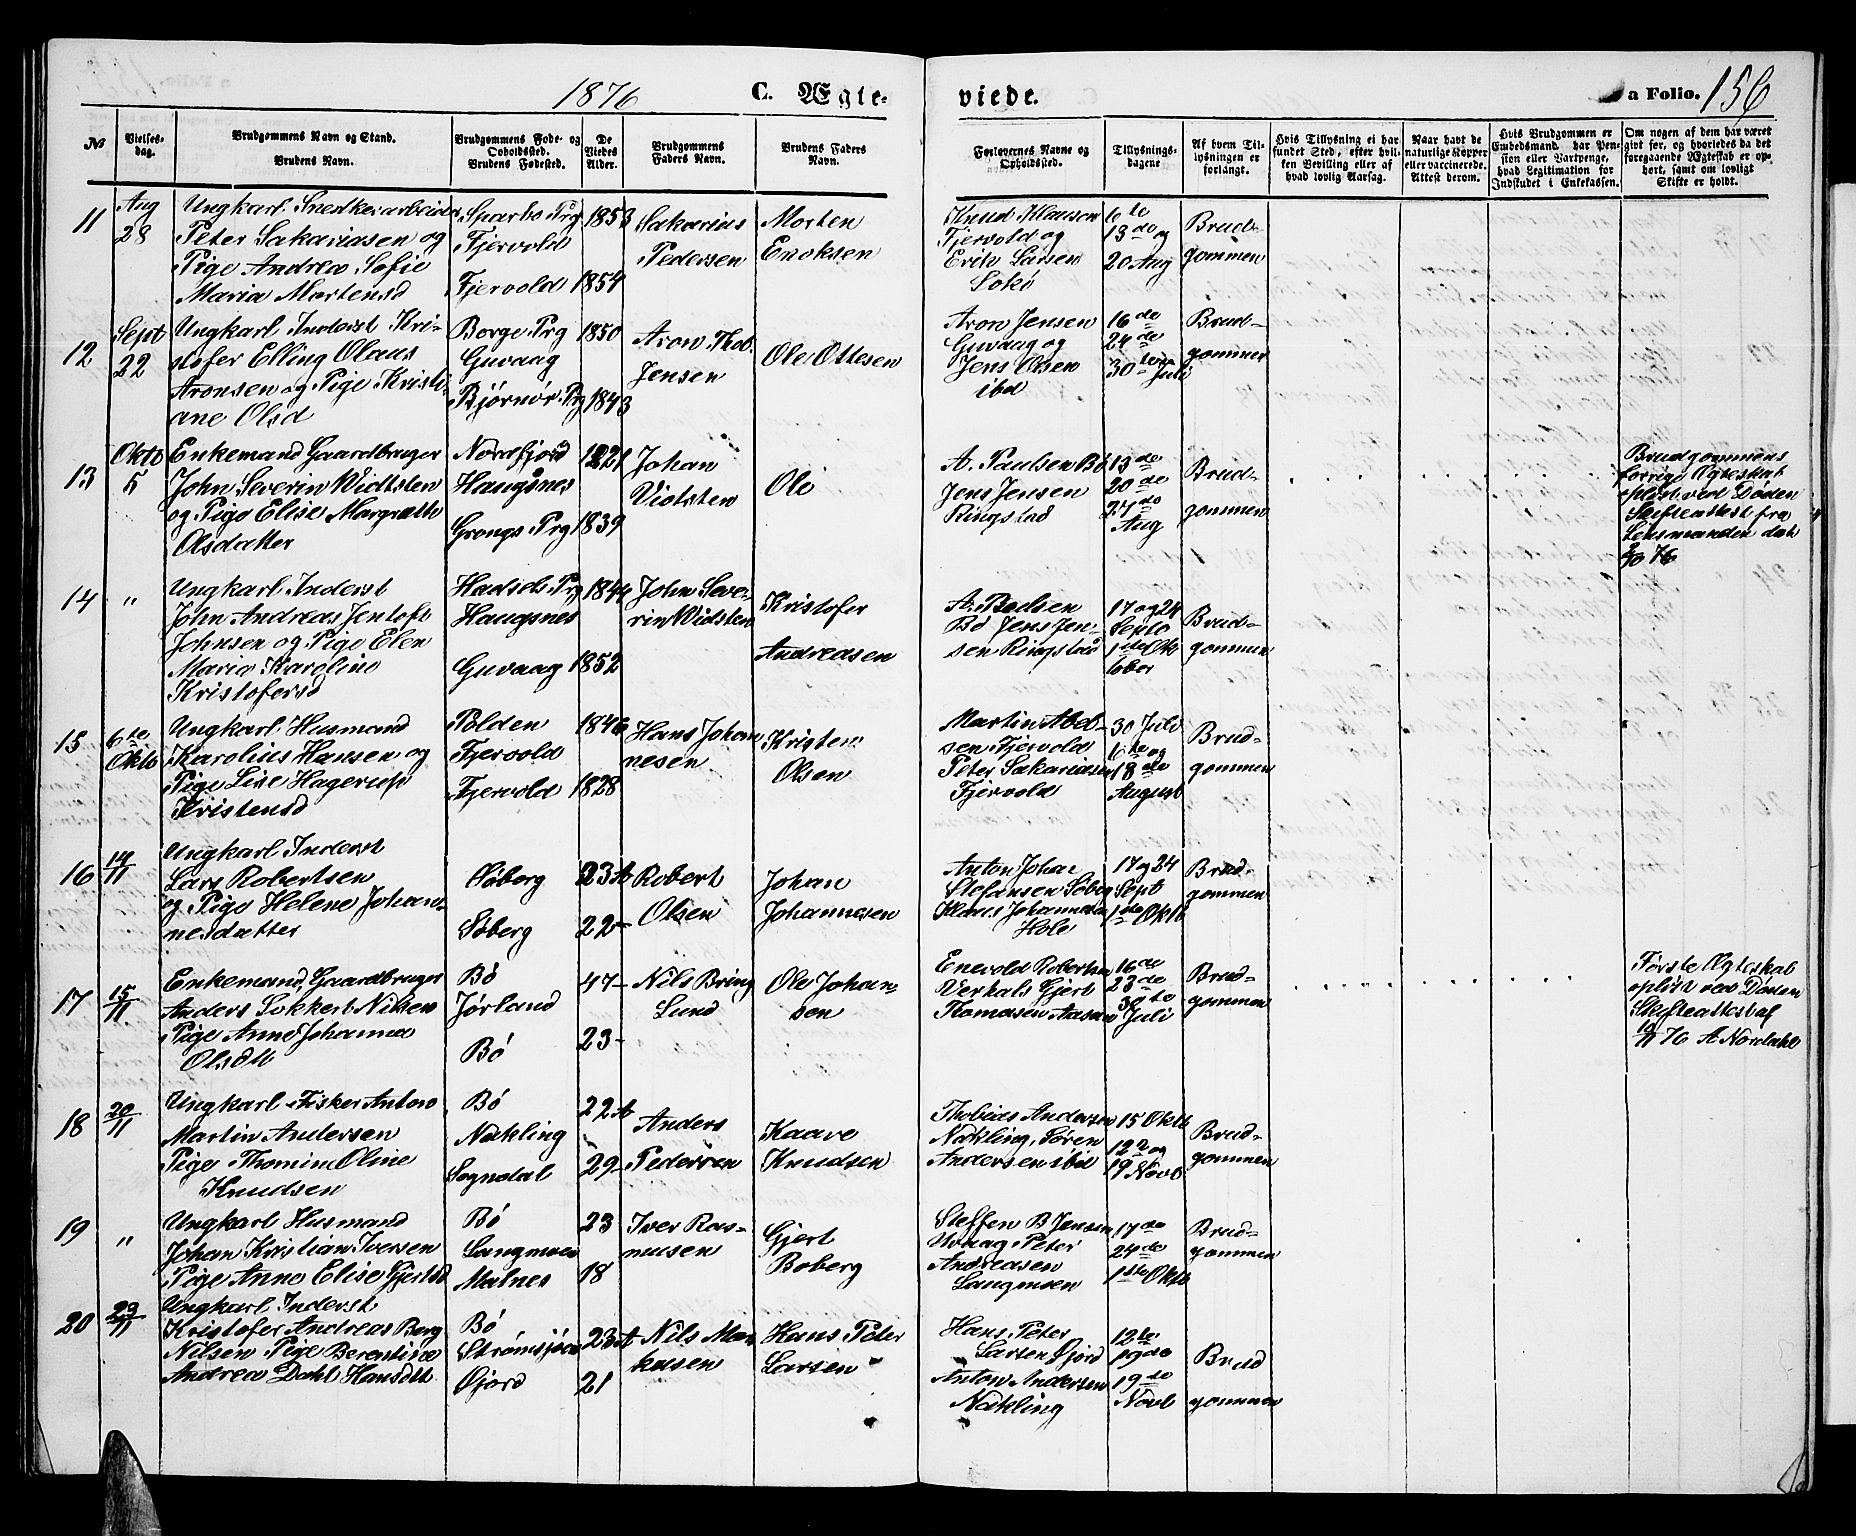 1876 C. Ægte-
viede. a Folio. 156
№
Vielses-
dag.
Brudgommens Navn og Stand.
Brudens Navn.
Brudgommens Føde- og
Opholdssted.
Brudens Fødested.
De
Viedes
Alder.
Brudgommens
Faders Navn.
Brudens Faders
Navn.
Forlovernes Navne og
Opholdssted.
Tillysnings-
dagene
Af hvem Til-
lysningen er
forlangt.
Hvis Tillysning ei har
fundet Sted, efter hvil-
ken Bevilling eller af
hvad lovlig Aarsag.
Naar havt de
naturlige Kopper
eller vaccinerede.
Attest derom.
Hvis Brudgommen er
Embedsmand, har Pen-
sion eller Vartpenge,
hvad Legitimation for
Indskudet i Enkekassen.
Om nogen af dem har været
givt før, og hvorledes da det
foregaaende Ægteskab er op-
hørt, samt om lovligt
Skifte er holdt.
11
Aug
28
Ungkarl Snedkerarbeider
Peter Sakariasen og
Pige Andrea Sofie
Maria Mortensd
Sparbo Prg
Fjervold
Fjervold
1853
1854
Sakarius
Pedersen
Morten
Enoksen
Knud Klausen
Fjervold og
Erik Larsen
Sokø
6te
13de og
20 Aug
Brud-
gommen
12
Sept
22
Ungkarl Inderst Kri-
stofer Elling Olaus
Aronsen og Pige Kristi-
ane Olsd
Borge Prg
Guvaag
Bjørnør Prg
1850
1843
Aron Thob.
Jensen
Ole Ottesen
Aron Jensen
Guvaag og
Jens Olsen
ibd
16de
24de
30te Juli
Brud-
gommen
13
Oktb
5
Enkemand Gaardbruger
John Severin Widtsten
og Pige Elise Margreth
Olsdatter
Nordfjord
Haugsnes
Grongs Prg
1821
1839
Johan
Vidtsten
Ole
A. Paulsen Bø
Jens Jensen
Ringstad
13de
20de
27de
Aug
Brud-
gommen
Brudgommens
forrige Ægteskab
opløst ved Døden
Skifteattest fra
Lensmanden dat
76
14
"
Ungkarl Inderst
John Andreas Jentoft
Johnsen og Pige Elen
Maria Karoline
Kristofersd
Hadsels Prg
Haugsnes
Guvaag
1844
1852
John Seve-
rin Widsten
Kristofer
Andreasen
A. Bø Jens Jen-
sen Ringstad
17 og 24
Septb
1ste Ok
tober
Brud-
gommen
15
6te
Oktb
Ungkarl Husmand
Karolius Hansen og
Pige Lise Hagerup
Kristensd
Polden
Fjervold
Fjervold
1846
1828
Hans Johan
nesen
Kristen
Olsen
Martin Abel-
sen Fjervold
Peter Sakariasen
Fjervold
30 Juli
6te og
18de
August
Brud-
gommen
16
14/11
Ungkarl Inderst
Lars Robertsen
og Pige Helene Johan-
nesdatter
Søberg
Søberg
23 A
22 -
Robert
Olsen
Johan
Johannesen
Anton Johan
Stefansen Søberg
Klaus Johannesen
Hole
17 og 24
Sept
1ste Oktb
Brud-
gommen
17
15/11
Enkemand, Gaardbruger
Anders Lokkert Nilsen
Pige Anne Johanna
Olsdtt
Bø
Jørland
Bø
47 -
23 -
Nils Bring
Lund
Ole Johan-
sen
Enevold Robertsen
Verhals Gjert
Thomasen Aasan
16de
23de
30te
Juli
Brud-
gommen
Første Ægteskab
opløst ved Døden
Skifteattest af
10/11 76 A Nordahl
18
20/11
Ungkarl Fisker Anton
Martin Andersen
Pige Thomine Oline
Knudsen
Bø
Nakling
Sogndal
22 A
29 -
Anders
Pedersen
Kaare
Knudsen
Thobias Andersen
Nakling, Søren
Andersen ibd
15 Oktb
12 og
19 Novb
Brud-
gommen
19
"
Ungkarl Husmand
Johan Kristian Iversen
Pige Anne Elise Gjertsd
Bø
Langmoen
Malnes
23
18
Iver Ras-
musen
Gjert
Boberg
Steffen B Jensen
Uvaag Peter
Andreasen
Langmoen
17de
24de
1ste Oktb
Brud-
gommen
20
29/11
Ungkarl Inderst
Kristofer Andreas Berg
Nilsen Pige Berentine
Andrea Dahl Hansdtt
Bø
Strømsjøen
Øjord
23 A
21
Nils Mar
kusen
Hans Peter
Larsen
Hans Peter
Larsen Øjord
Anton Andersen
Nakling
12te
19de
19te
Novb
Brud
gommen